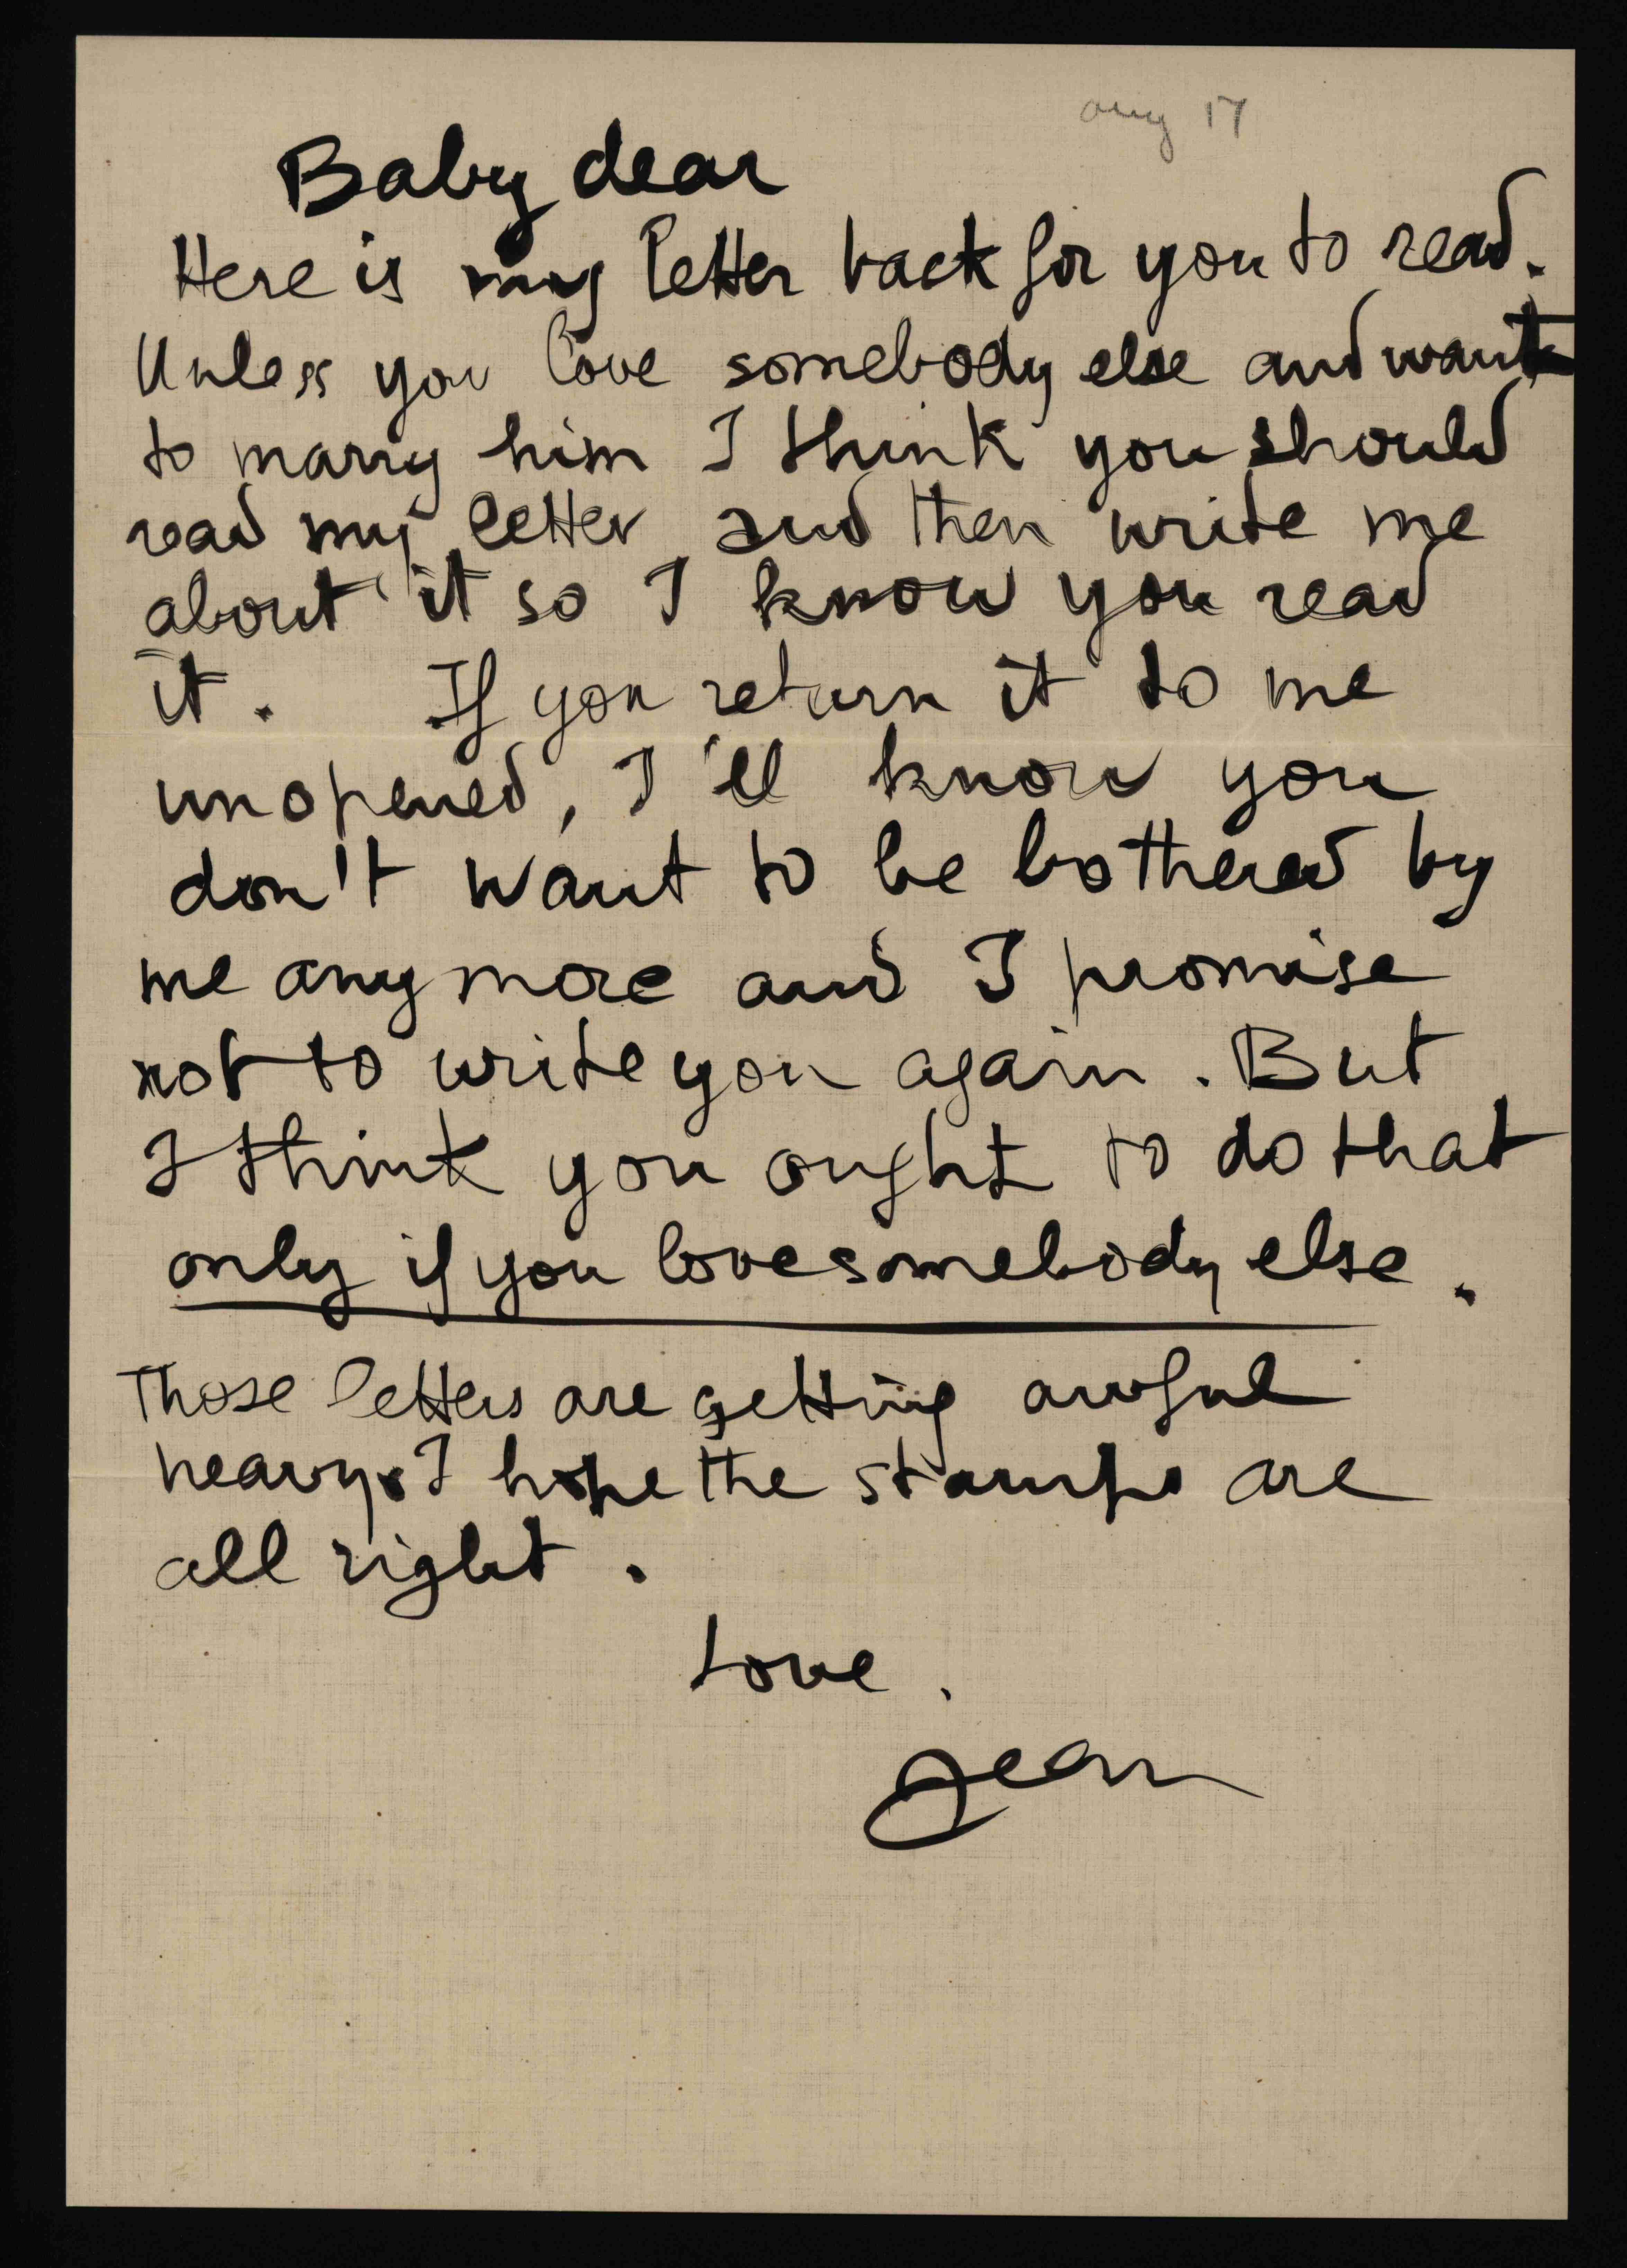 aug 17
Baby dear
Here is my letter back for you to read.
Unless you love somebody else and want
to marry him I think you should
read my letter and then write me
about it so I know you read
it. If you return it to me
unopened, I'll know you
don't want to be bothered by
me any more and I promise
not to write you again. But
I think you ought to do that
only if you love somebody else.
Those letters are getting awful
heavy. I hope the stamps are
all right.
Love.
Jean